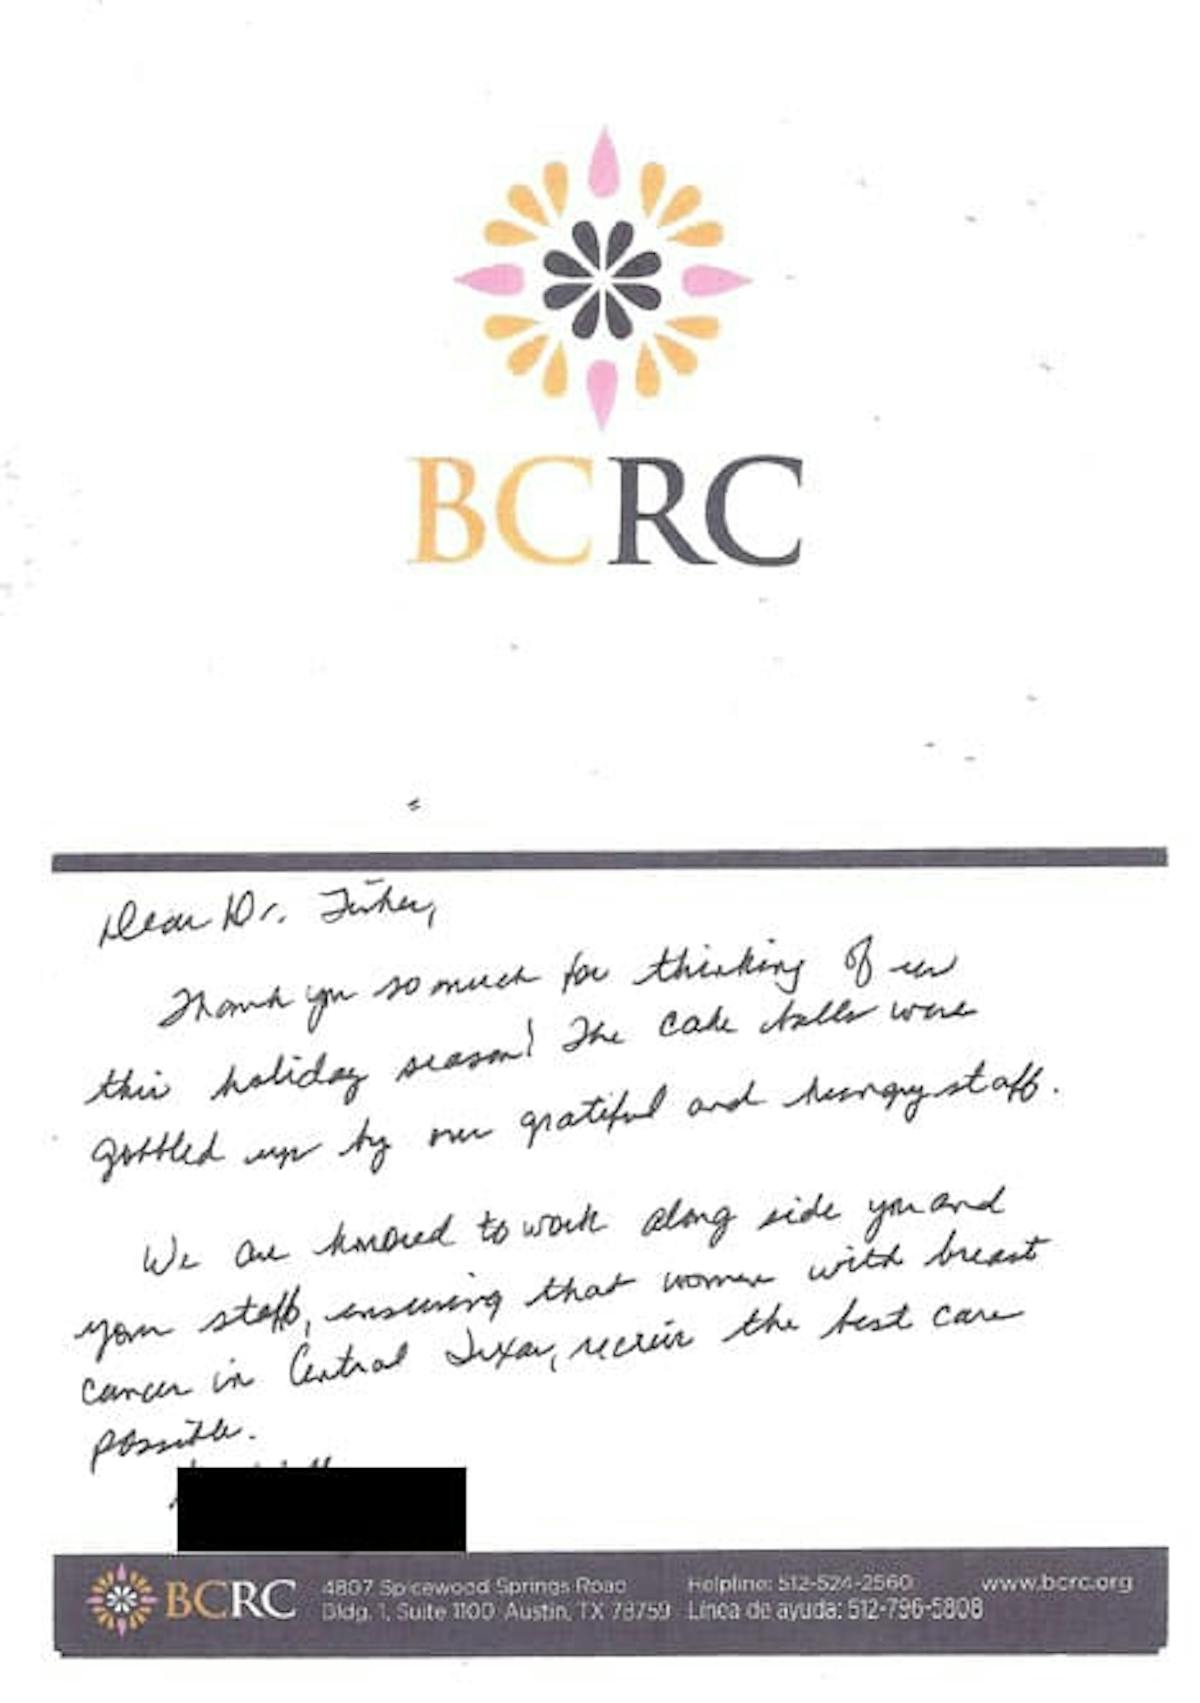 BCRC
Dear Dr. Fisher,
Thank you so much for thinking of us
this holiday season! The cake balls were
gobbled up by our grateful and hungry staff.
We are honored to work along side you and
your staff, ensuring that women with breast
cancer in Central Texas, receive the best care
possible.
BCRC
4807 Spicewood Springs Road Helpline: 512-524-2560 www.bcrc.org
Bldg. 1, Suite 1100 Austin, TX 78759 Línea de ayuda: 512-796-5808